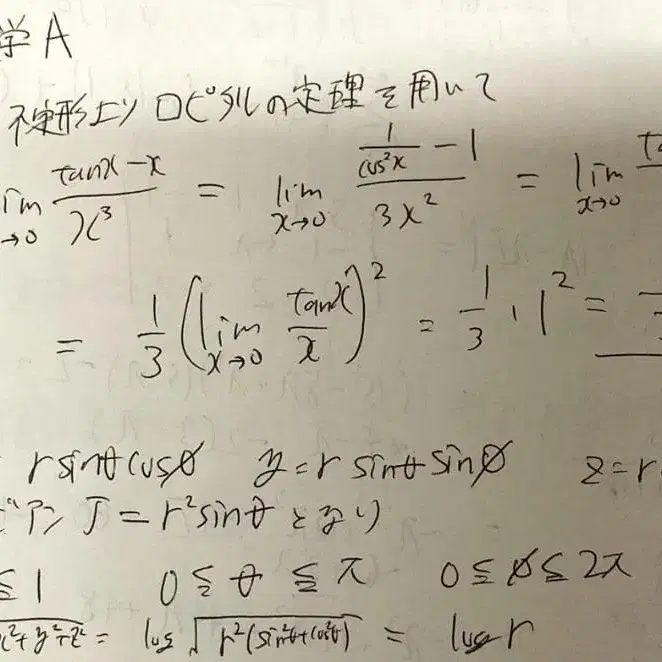 学A
不定形よりロピタルの定理を用いて
lim →0 (tanx - x)/x³ = lim x→0 (1/cos²x - 1)/3x² = lim x→0 ta
= 1/3 (lim x→0 tanx/x)² = 1/3 · 1² =
r sinθ cosφ y = r sinθ sinφ z = r
アン J = r² sinθ となり
≦ 1 0 ≦ θ ≦ π 0 ≦ φ ≦ 2π
√x²+y²+z² = log √r²(sin²θ+cos²θ) = log r